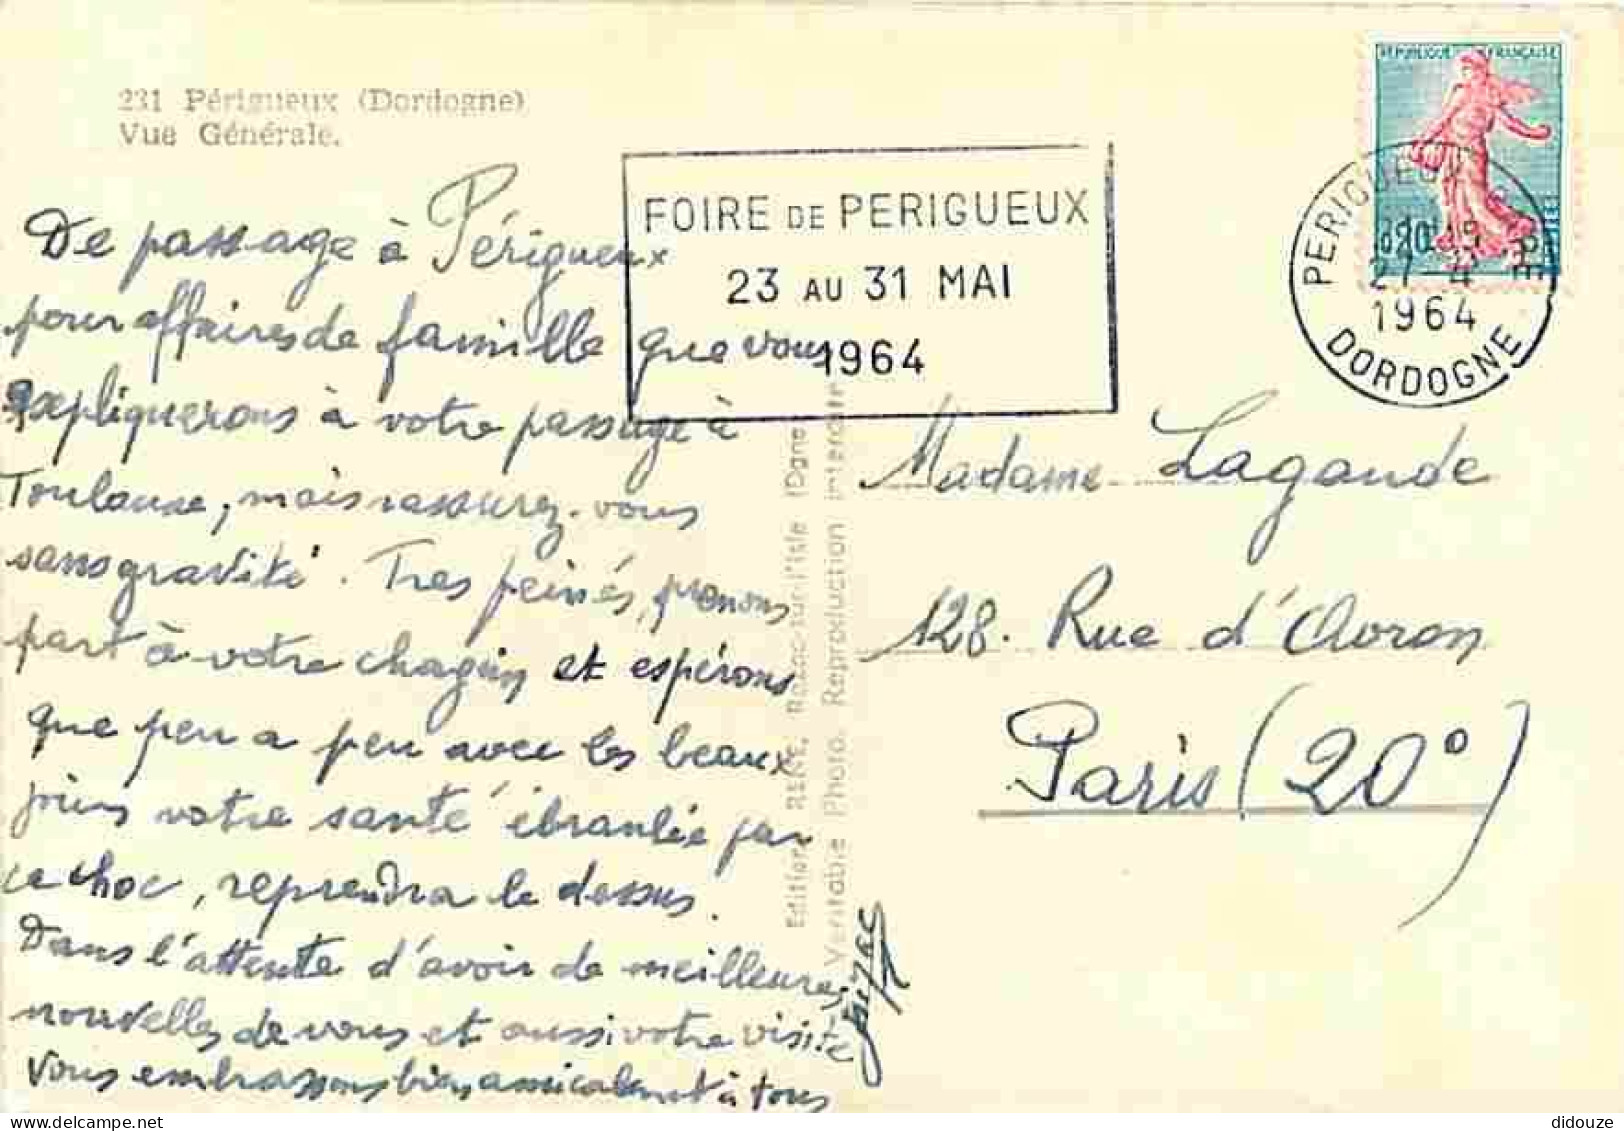 231 Périgueux (Dordogne)
Vue Générale.
De passage à Périgueux
pour affaires de famille que vous
expliquerons à votre passage à
Toulouse, mais rassurez-vous
sans gravité. Tres peinés, prenons
part à votre chagrin et espérons
que peu a peu avec les beaux
jours votre santé ébranlée par
ce choc, reprendra le dessus.
Dans l'attente d'avoir de meilleures
nouvelles de vous et aussi votre visite
Vous embrassons bien amicalement à tous
FOIRE DE PERIGUEUX
23 AU 31 MAI
1964
REPUBLIQUE FRANÇAISE
0,20
POSTES
PERIGUEUX
1964
DORDOGNE
Madame Lagaude
128. Rue d'Avron
Paris (20°)
Editions RENE, Razac-sur-l'Isle (Dgne)
Véritable Photo. Reproduction interdite
didouze